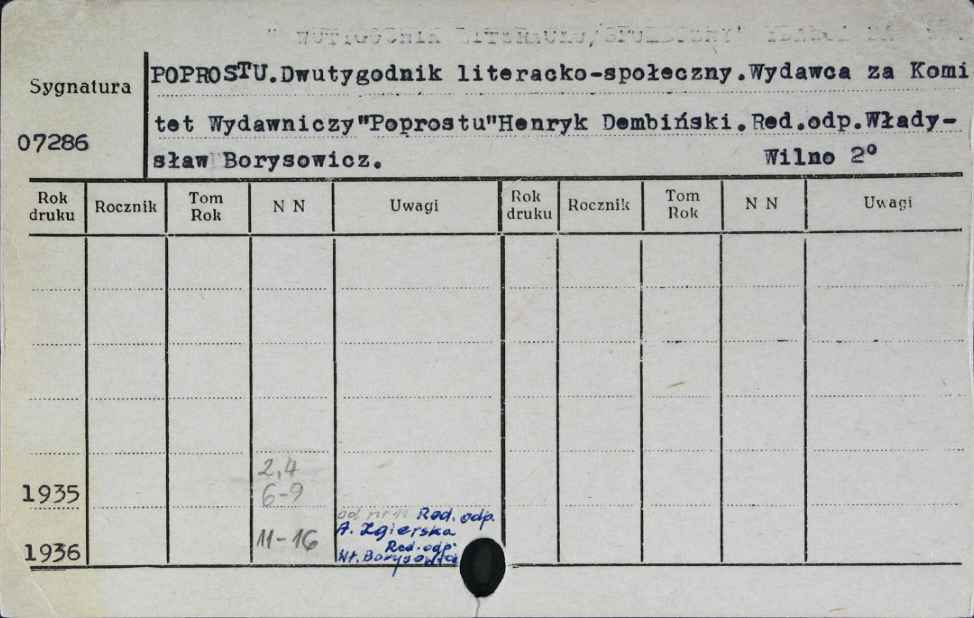 Sygnatura
07286
POPROSTU.Dwutygodnik literacko-społeczny.Wydawca za Komi
tet Wydawniczy"Poprostu"Henryk Dembiński.Red.odp.Włady-
sław Borysowicz. Wilno 2°
Rok druku Rocznik Tom Rok N N Uwagi Rok druku Rocznik Tom Rok N N Uwagi
2,4
1935 6-9
od nr 11 Red. odp.
A. Zgierska
1936 11-16
Red. odp.
Wł. Borysowicz